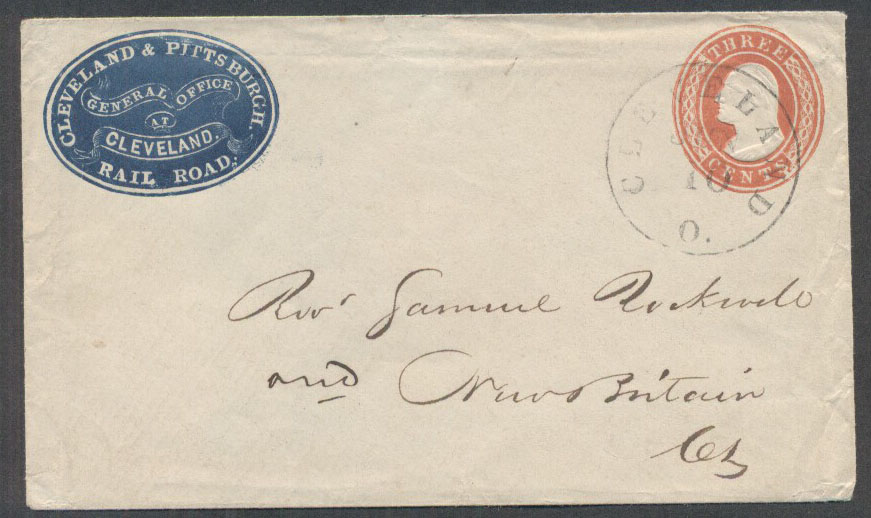 CLEVELAND & PITTSBURGH.
GENERAL OFFICE
AT
CLEVELAND.
RAIL ROAD.
THREE
CENTS
CLEVELAND
10
O.
Revr Samuel Rockwell
New Britain
Ct